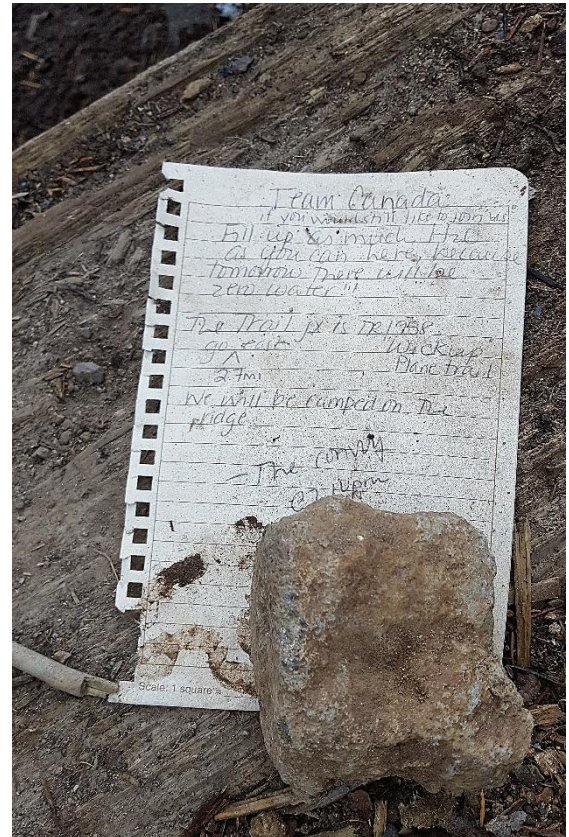 Team Canada
if you would still like to join us
Fill up as much H2O
as you can here, because
tomorrow there will be
zero water"!
The Trail jx is
go east "Wickiup
^ Plane Trail
2.7mi
We will be camped on The
ridge
- The
Scale: 1 square =